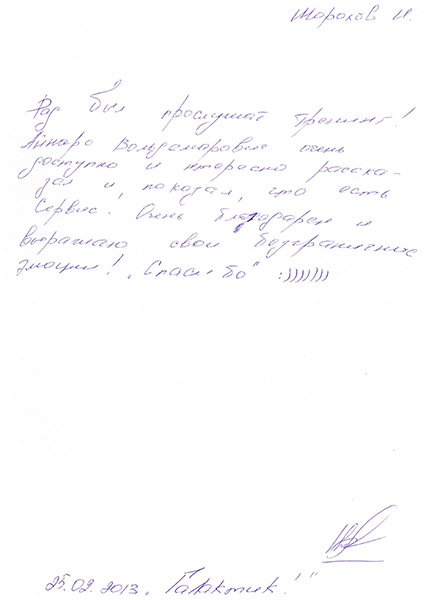 Жоролов И.
Рад был прослушат тренинг!
Айнара Вольдемаровна очень
доступно и нтересно расска-
зал и показал, что есть
Сервис! Очень благодарен и
выражаю свои безграничные
эмоции! „Спасибо" :)))))))
25.02.2013 „Галактик!"